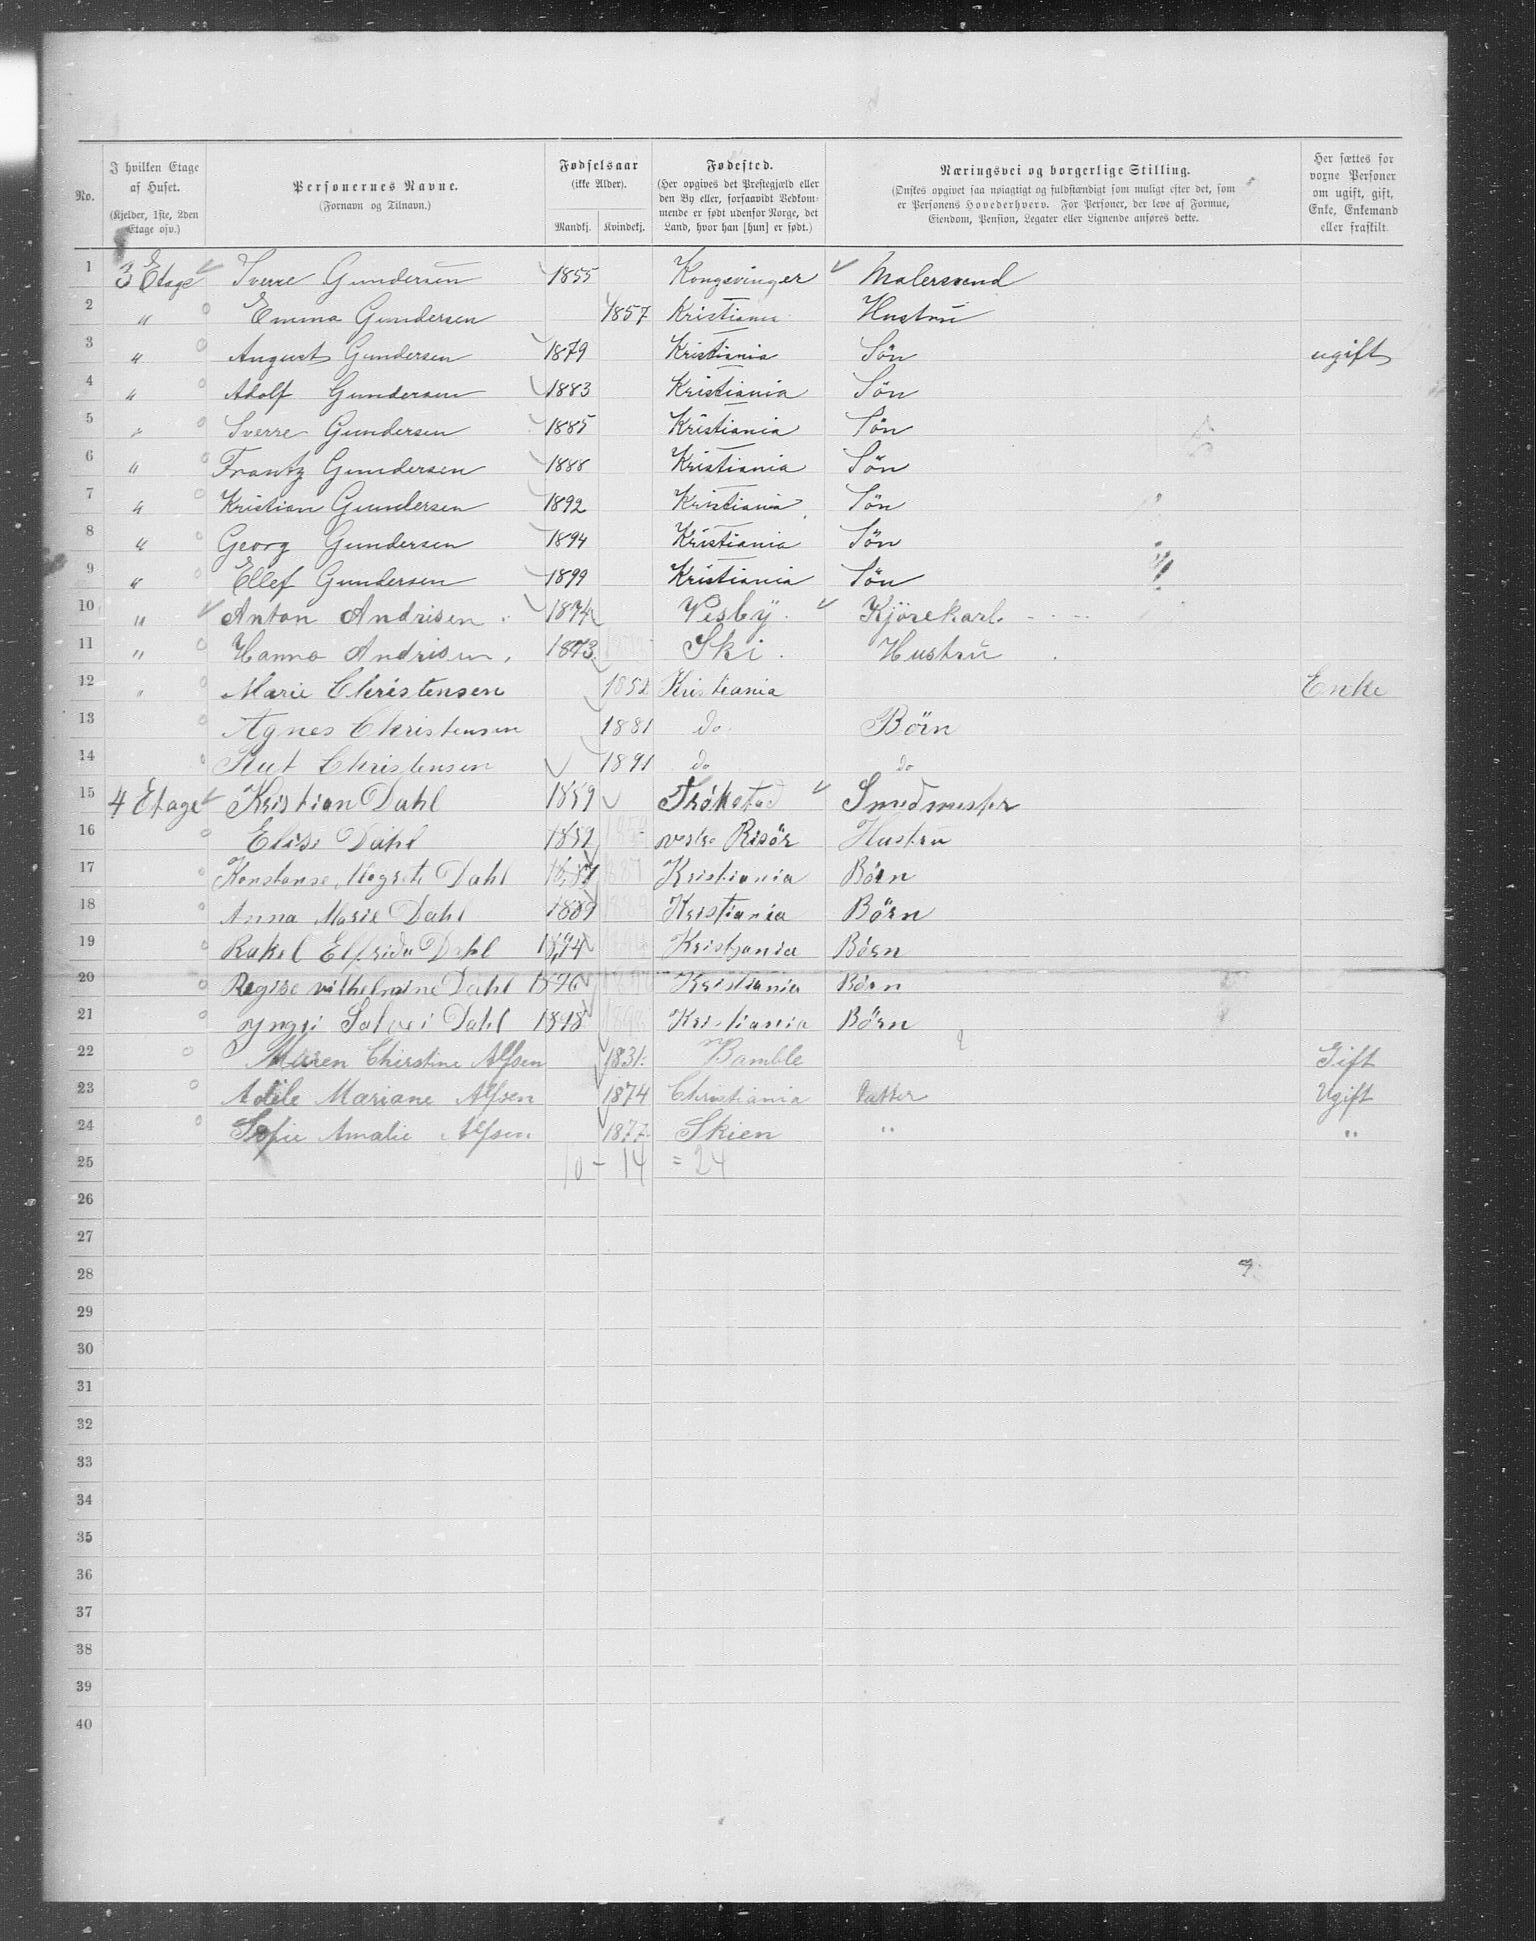 No. | I hvilken Etage af Huset. (Kjelder, 1ste, 2den Etage osv.) | Personernes Navne. (Fornavn og Tilnavn.) | Fødselsaar (ikke Alder). Mandkj. Kvindekj. | Fødested. (Her opgives det Prestegjæld eller den By eller, forsaavidt Vedkommende er født udenfor Norge, det Land, hvor han [hun] er født.) | Næringsvei og borgerlige Stilling. (Ønskes opgivet saa nøiagtigt og fuldstændigt som muligt efter det, som er Personens Hovederhverv. For Personer, der leve af Formue, Eiendom, Pension, Legater eller Lignende anføres dette.) | Her sættes for voxne Personer om ugift, gift, Enke, Enkemand eller fraskilt.
1 3 Etage Sverre Gundersen 1855 Kongsvinger Malersvend
2 " Emma Gundersen 1857 Kristiania Hustru
3 " August Gundersen 1879 Kristiania Sön ugift
4 " Adolf Gundersen 1883 Kristiania Sön
5 " Sverre Gundersen 1885 Kristiania Sön
6 " Frantz Gundersen 1888 Kristiania Sön
7 " Kristian Gundersen 1892 Kristiania Sön
8 " Georg Gundersen 1894 Kristiania Sön
9 " Ellef Gundersen 1899 Kristiania Sön
10 " Anton Andrisen 1874 Vesby Kjörekarl
11 " Hanna Andrisen 1873 Ski Hustru
12 " Marie Christensen 1852 Kristiania Enke
13 Agnes Christensen 1881 do Börn
14 Rut Christensen 1891 do do
15 4 Etage Kristian Dahl 1859 Trökstad Smedmester
16 Elise Dahl 1859 vestre Risör Hustru
17 Konstanse Magrete Dahl 1887 Kristiania Börn
18 Anna Marie Dahl 1889 Kristiania Börn
19 Rakel Elfrida Dahl 1894 Kristiania Börn
20 Regise vilhelmine Dahl 1896 Kristiania Börn
21 yngvi Salvei Dahl 1898 Kristiania Börn
22 Maren Chirstine Alfsen 1831 Bamble Gift
23 Adele Mariane Alfsen 1874 Christiania Datter Ugift
24 Sofie Amalie Alfsen 1877 Skien " "
25 10 - 14 = 24
26
27
28
29
30
31
32
33
34
35
36
37
38
39
40